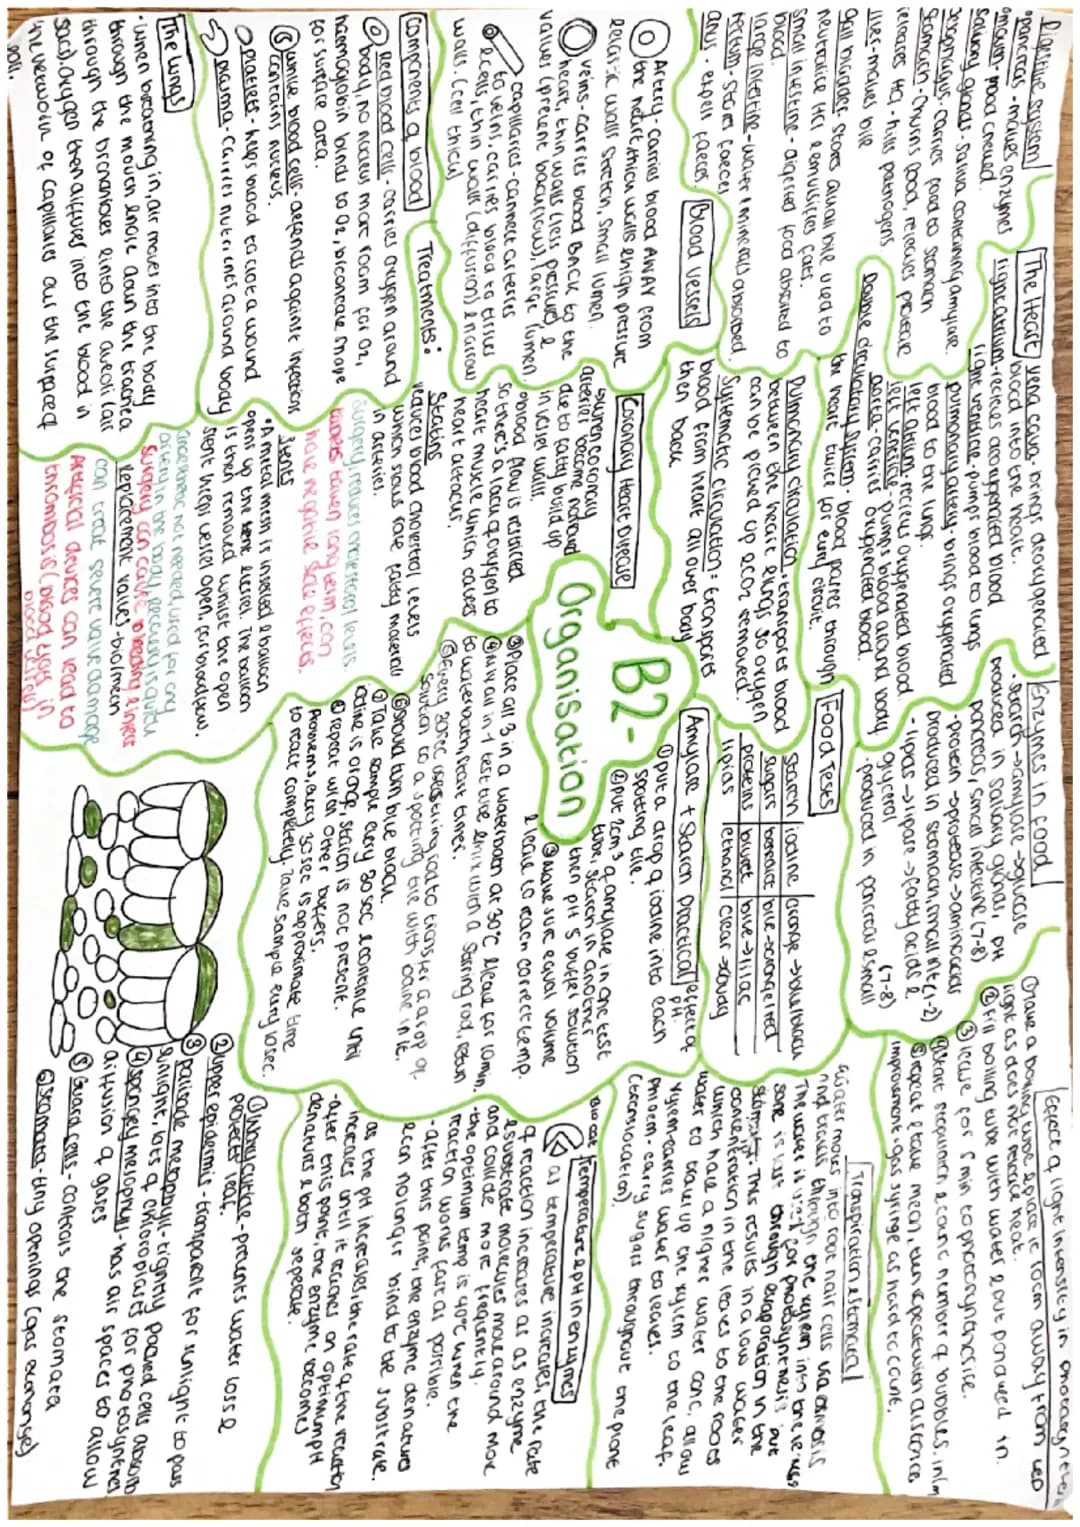 B2-
Organisation
Digestive system
• pancreas - makes enzymes
• mouth - food chewed.
salivary glands - saliva containing amylase.
oesophagus - carries food to stomach
stomach - churns food, releases protease
releases HCl - kills pathogens
liver - makes bile
gall bladder - stores alkali bile used to
neutralise HCl & emulsifies fats.
small intestine - digested food absorbed to
blood.
large intestine - water & minerals absorbed.
rectum - stores faeces
anus - expels faeces.
Blood vessels
Artery - carries blood AWAY from
the heart, thick walls & high pressure
elastic walls stretch, small lumen.
veins - carries blood BACK to the
heart, thin walls (less pressure) &
valves (prevent backflow), large lumen.
capillaries - connect arteries
to veins, carries blood to tissues
& cells, thin walls (diffusion) & narrow
walls. (1 cell thick)
Components of blood
Red blood cells - carries oxygen around
body, no nucleus more room for O2,
haemoglobin binds to O2, biconcave shape
for surface area.
white blood cells - defends against infection
contains nucleus.
Platelets - helps blood to clot a wound
plasma - carries nutrients around body
The lungs
- when breathing in, air moves into the body
through the mouth & nose down the trachea
through the bronchioles & into the alveoli (air
sacs). Oxygen then diffuses into the blood in
the network of capillaries
The Heart
vena cava - brings deoxygenated
blood into the heart.
right atrium - recieves deoxygenated blood
right ventricle - pumps blood to lungs
pulmonary artery - brings oxygenated
blood to the lung.
left atrium - recieves oxygenated blood
left ventricle - pumps blood around body
aorta - carries oxygenated blood.
Double circulatory system - blood passes through
the heart twice for every circuit.
Pulmonary circulation - transports blood
between the heart & lungs so oxygen
can be picked up & CO2 removed.
Systematic circulation: transports
blood from heart all over body
then back
Coronary Heart Disease
• when coronary
arteries become narrowed
due to fatty build up
in vessel walls.
• blood flow is restricted
so there's a lack of oxygen to
heart muscle which causes
heart attacks.
Treatments:
Statins
reduces blood cholesterol levels
which slows rate fatty material
in arteries.
surgery, reduces cholesterol levels.
tablets taken long term, can
have negative side effects.
Stents
• A metal mesh is inserted & balloon
opens up the vessel. The balloon
is then removed whilst the open
stent keeps vessel open, for bloodflow.
anaesthetic not needed, used for any
artery in the body, recovery is quick
Surgery can cause bleeding & infect
Replacement valves - bio/mech
can treat severe valve damage
Artificial devices can lead to
thrombosis (blood clots in
Enzymes in food
• starch → amylase → glucose
produced in salivary glands, pH
pancreas, small intestine (7-8)
• protein → protease → amino acids
produced in stomach, small int (1-2)
• lipids → lipase → fatty acids &
glycerol (7-8)
• produced in pancreas & small
Food Tests
starch | iodine | orange → blue/black
sugars | benedict | blue → orange/red
proteins | biuret | blue → lilac
lipids | ethanol | clear → cloudy
Amylase + Starch practical (effect of pH.
① put a drop of iodine into each
spotting tile.
② put 2cm3 of amylase in one test
tube, starch in another
then pH 5 buffer solution
③ make sure equal volume
& leave to reach correct temp.
③ Place all 3 in a waterbath at 30°C & leave for 10min.
④ mix all in 1 test tube & mix with a stirring rod, return
to waterbath, start times.
⑤ Every 30sec use stirring rod to transfer a drop of
solution to a spotting tile with iodine in it.
⑥ Should turn blue black.
⑦ Take sample every 30 sec & continue until
iodine is orange, starch is not present.
⑧ repeat with other buffers.
Problems, every 30 sec is approximate time
to react completely. Take sample every 10sec.
Effect of light intensity in photosynthesis
① Have a boiling tube & place it 10cm away from LED
light as does not release heat.
② fill boiling tube with water & put pondweed in.
③ leave for 5 min to photosynthesise.
④ start stopwatch & count number of bubbles in 1m
⑤ repeat & take mean, then repeat with distance
improvement - gas syringe as hard to count.
Transpiration
water moves into root hair cells via osmosis
and travels through the xylem into the leaves
The water is used for photosynthesis but
some is lost through evaporation in the
stomata. This results in a low water
concentration in the leaves to the roots
which have a higher water conc, allow
water to travel up the xylem to the leaf.
Xylem - carries water to leaves.
phloem - carry sugars throughout the plant
(translocation).
Temperature & pH in enzymes
as temperature increases, the rate
of reaction increases as enzyme
& substrate molecules move around more
and collide more frequently.
- the optimum temp is 40°C when the
reaction works fast as possible.
- after this point, the enzyme denatures
& can no longer bind to the substrate.
as the pH increases, the rate of the reaction
increases until it reaches an optimum pH
- after this point, the enzyme becomes
denatures & both seperate.
① Waxy cuticle - prevents water loss &
protects leaf.
② upper epidermis - transparent for sunlight to pass
③ palisade mesophyll - tightly packed cells absorb
sunlight, lots of chloroplasts for photosynthesis
④ spongey mesophyll - has air spaces to allow
diffusion of gases
⑤ Guard cells - controls the stomata
⑥ Stomata - tiny openings (gas exchange)